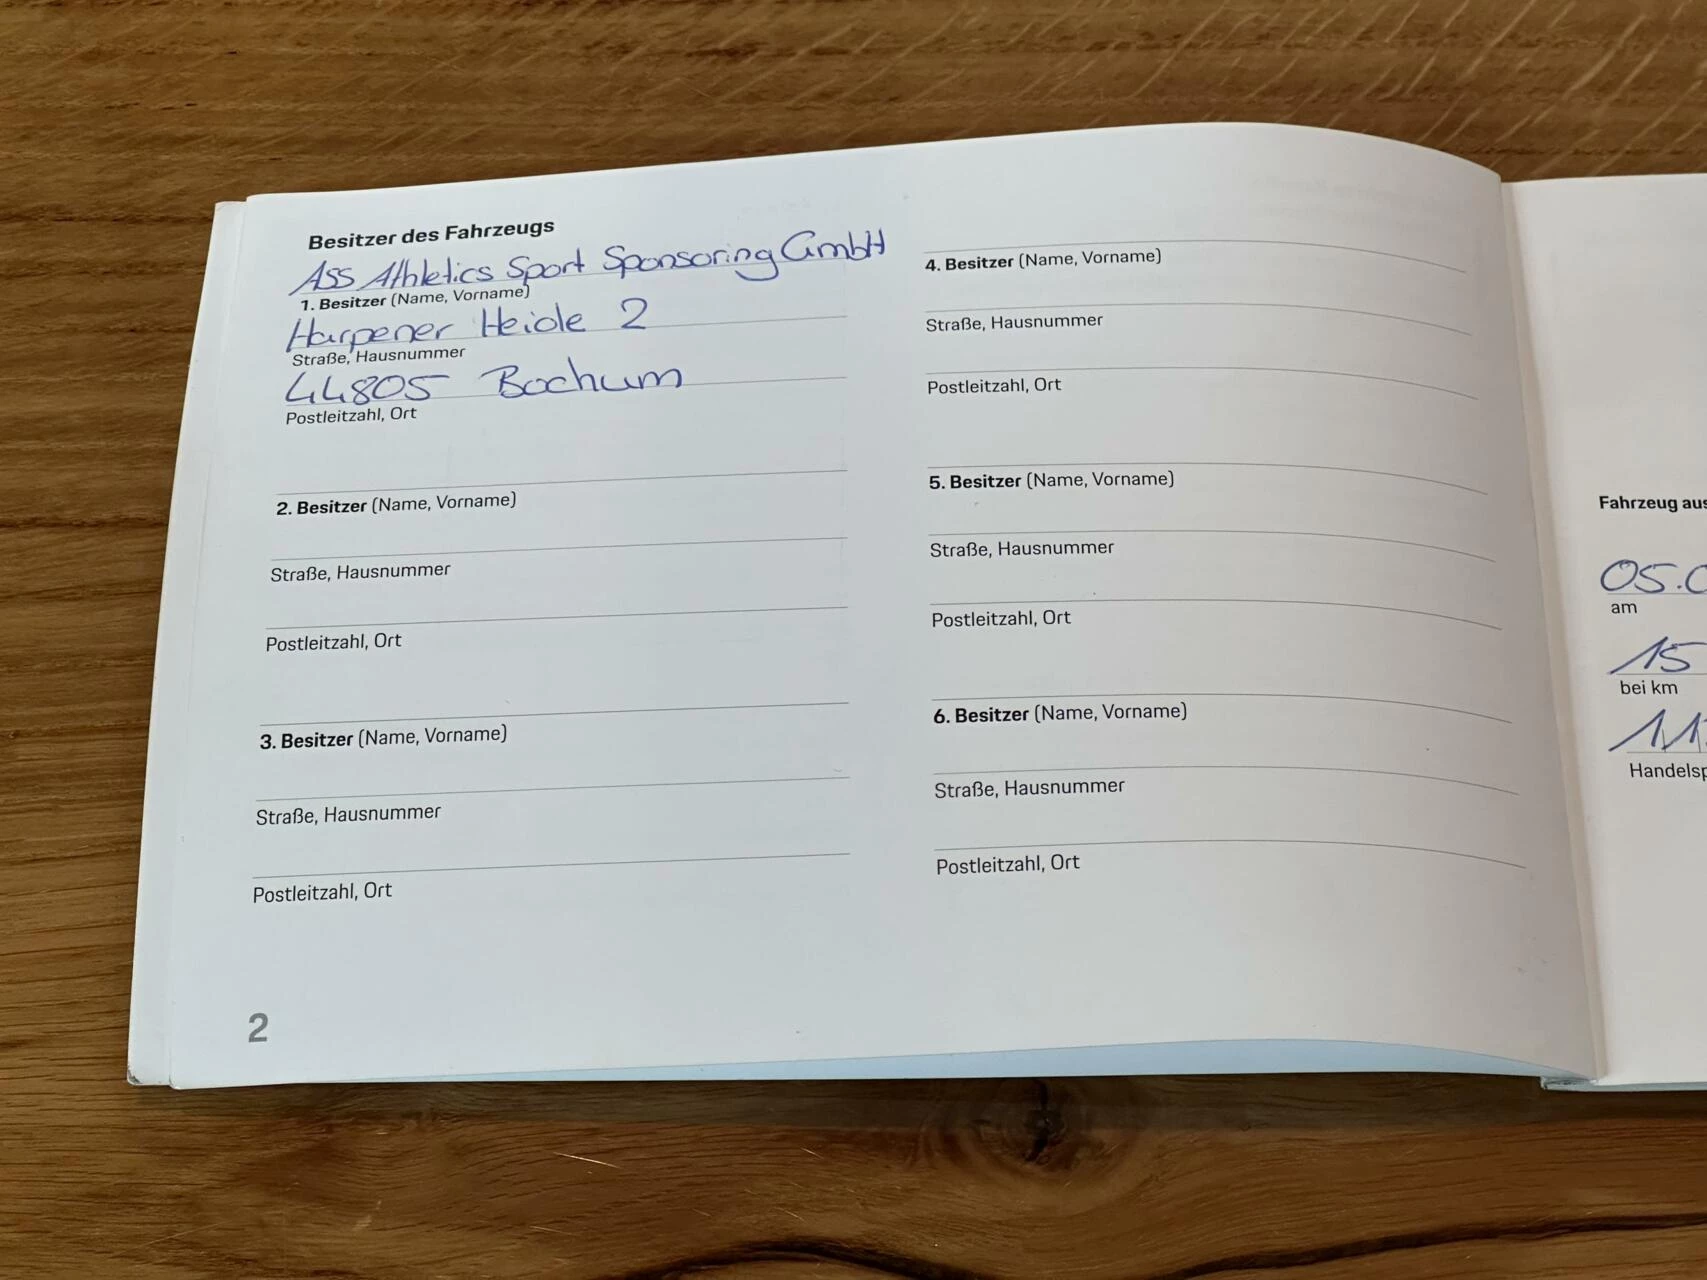 Besitzer des Fahrzeugs
ASS Athletics Sport Sponsoring GmbH
1. Besitzer (Name, Vorname)
Harpener Heide 2
Straße, Hausnummer
44805 Bochum
Postleitzahl, Ort
2. Besitzer (Name, Vorname)
Straße, Hausnummer
Postleitzahl, Ort
3. Besitzer (Name, Vorname)
Straße, Hausnummer
Postleitzahl, Ort
2
4. Besitzer (Name, Vorname)
Straße, Hausnummer
Postleitzahl, Ort
5. Besitzer (Name, Vorname)
Straße, Hausnummer
Postleitzahl, Ort
6. Besitzer (Name, Vorname)
Straße, Hausnummer
Postleitzahl, Ort
Fahrzeug aus
05.0
am
15
bei km
Handelsp